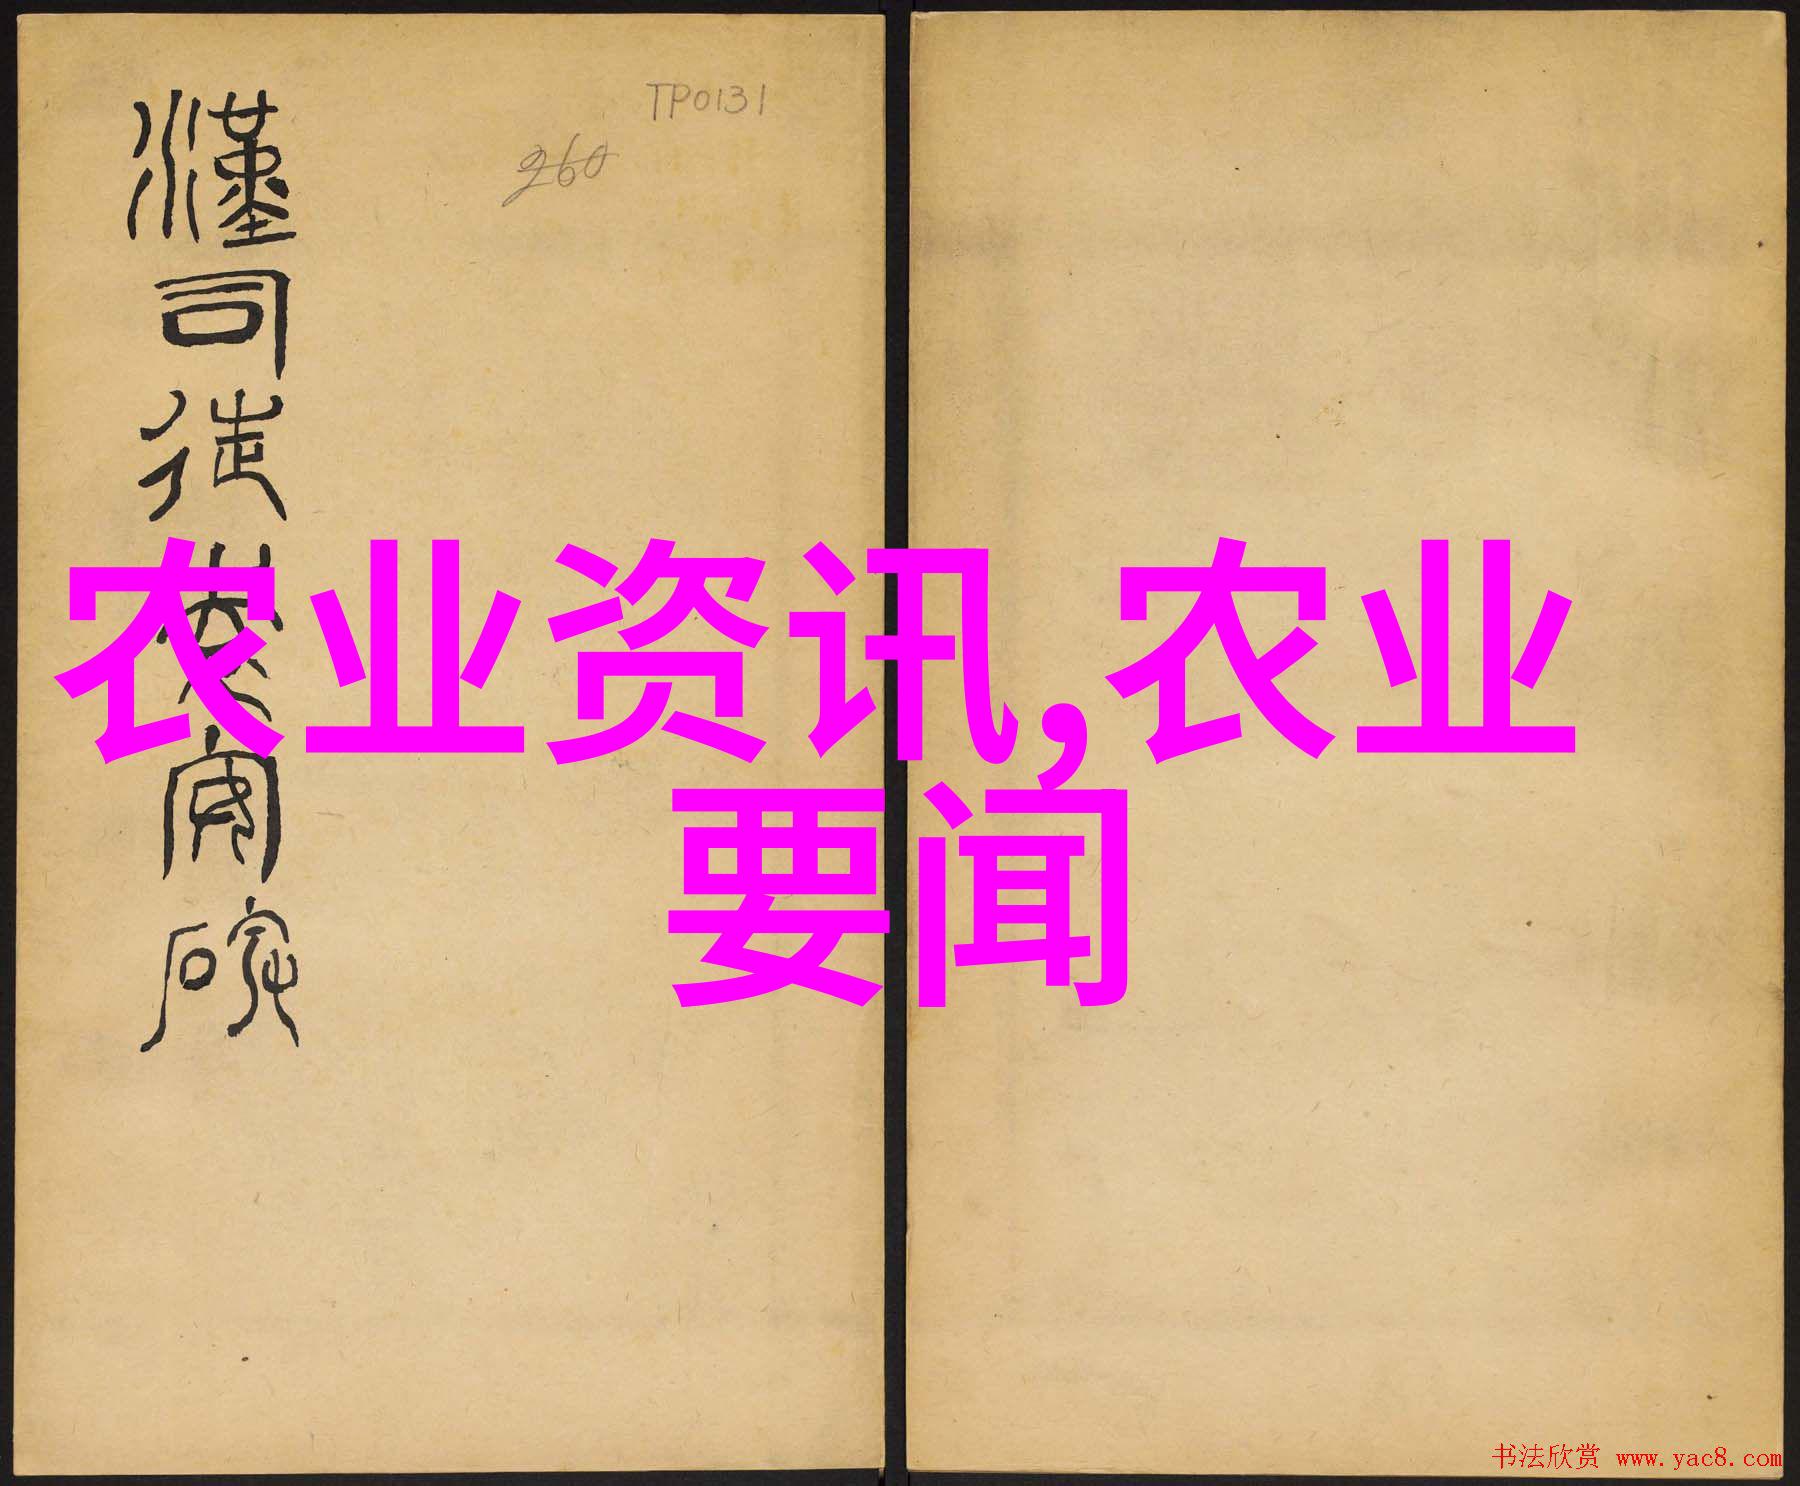 TP0131
260
漢司徒袁安碑
农业资讯,农业
要闻
书法欣赏 www.yac8.com